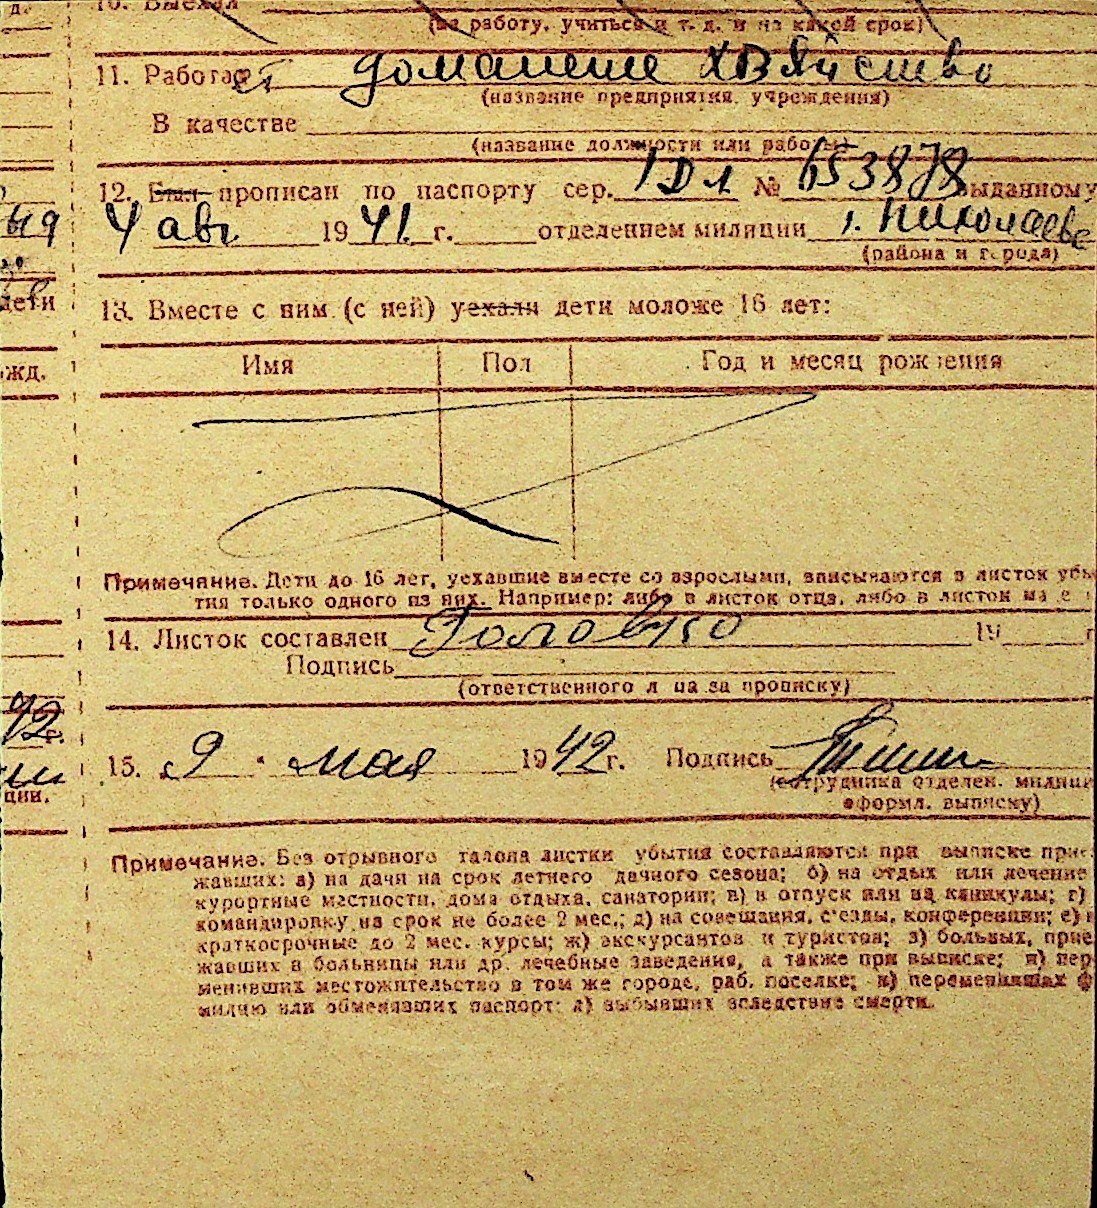 10. Выехал
(на работу, учиться и т. д. и на какой срок)
11. Работает домашнее хозяйство
(название предприятия, учреждения)
В качестве
(название должности или работы)
12. Был прописан по паспорту сер. I Дл № 653878 выданному
4 авг. 1941 г. отделением милиции г. Николаеве
(района и города)
13. Вместе с ним (с ней) уехали дети моложе 16 лет:
Имя Пол Год и месяц рождения
Примечание. Дети до 16 лет, уехавшие вместе со взрослыми, вписываются в листок убы
тия только одного из них. Например: либо в листок отца, либо в листок
14. Листок составлен 19 г
Подпись
(ответственного лица за прописку)
15. 9 мая 1942 г. Подпись
(сотрудника отделен. милици
оформл. выписку)
Примечание. Без отрывного талона листки убытия составляются при выписке прие
жавших: а) на дачи на срок летнего дачного сезона; б) на отдых или лечение
курортные местности, дома отдыха, санатории; в) в отпуск или на каникулы; г)
командировку на срок не более 2 мес.; д) на совещания, с'езды, конференции; е) н
краткосрочные до 2 мес. курсы; ж) экскурсантов и туристов; з) больных, прие
жавших в больницы или др. лечебные заведения, а также при выписке; и) пер
менивших местожительство в том же городе, раб. поселке; к) переменивших ф
милию или обменявших паспорт; л) выбывших вследствие смерти.